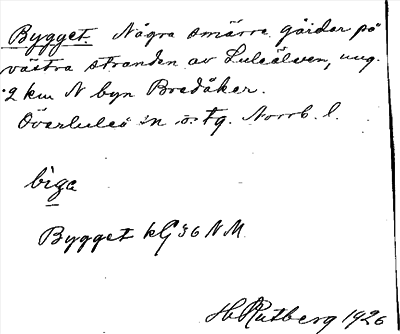 Bygget. Några smärre gårdar på
västra stranden av Luleälven, ung.
2 km N byn Bredåker.
Överluleå sn ö. tg. Norrb. l.
Bygget kG36 NM.
H Rutberg 1926